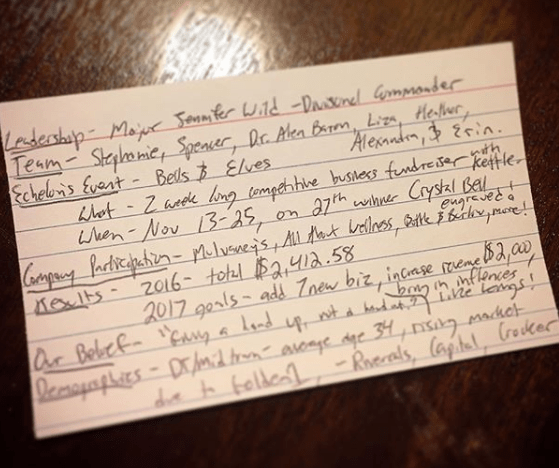 Leadership - Major Jennifer Wild - Divisional Commander
Team - Stephanie, Spencer, Dr. Alen Baron, Liza, Heather,
Alexandra, & Erin.
Echelon's Event - Bells & Elves
What - 2 week long competitive business fundraiser with kettle
When - Nov 13-25, on 27th winner Crystal Bell engraved!
Company Participation - Mulvaney's, All About Wellness, & more!
Results - 2016 - total $2,412.58
2017 goals - add 7 new biz, increase revenue $2,000,
bring in influences,
Our Belief - a hand up, not a handout"
Demographics - average age 34, rising market
due to - Riverals, Capital,